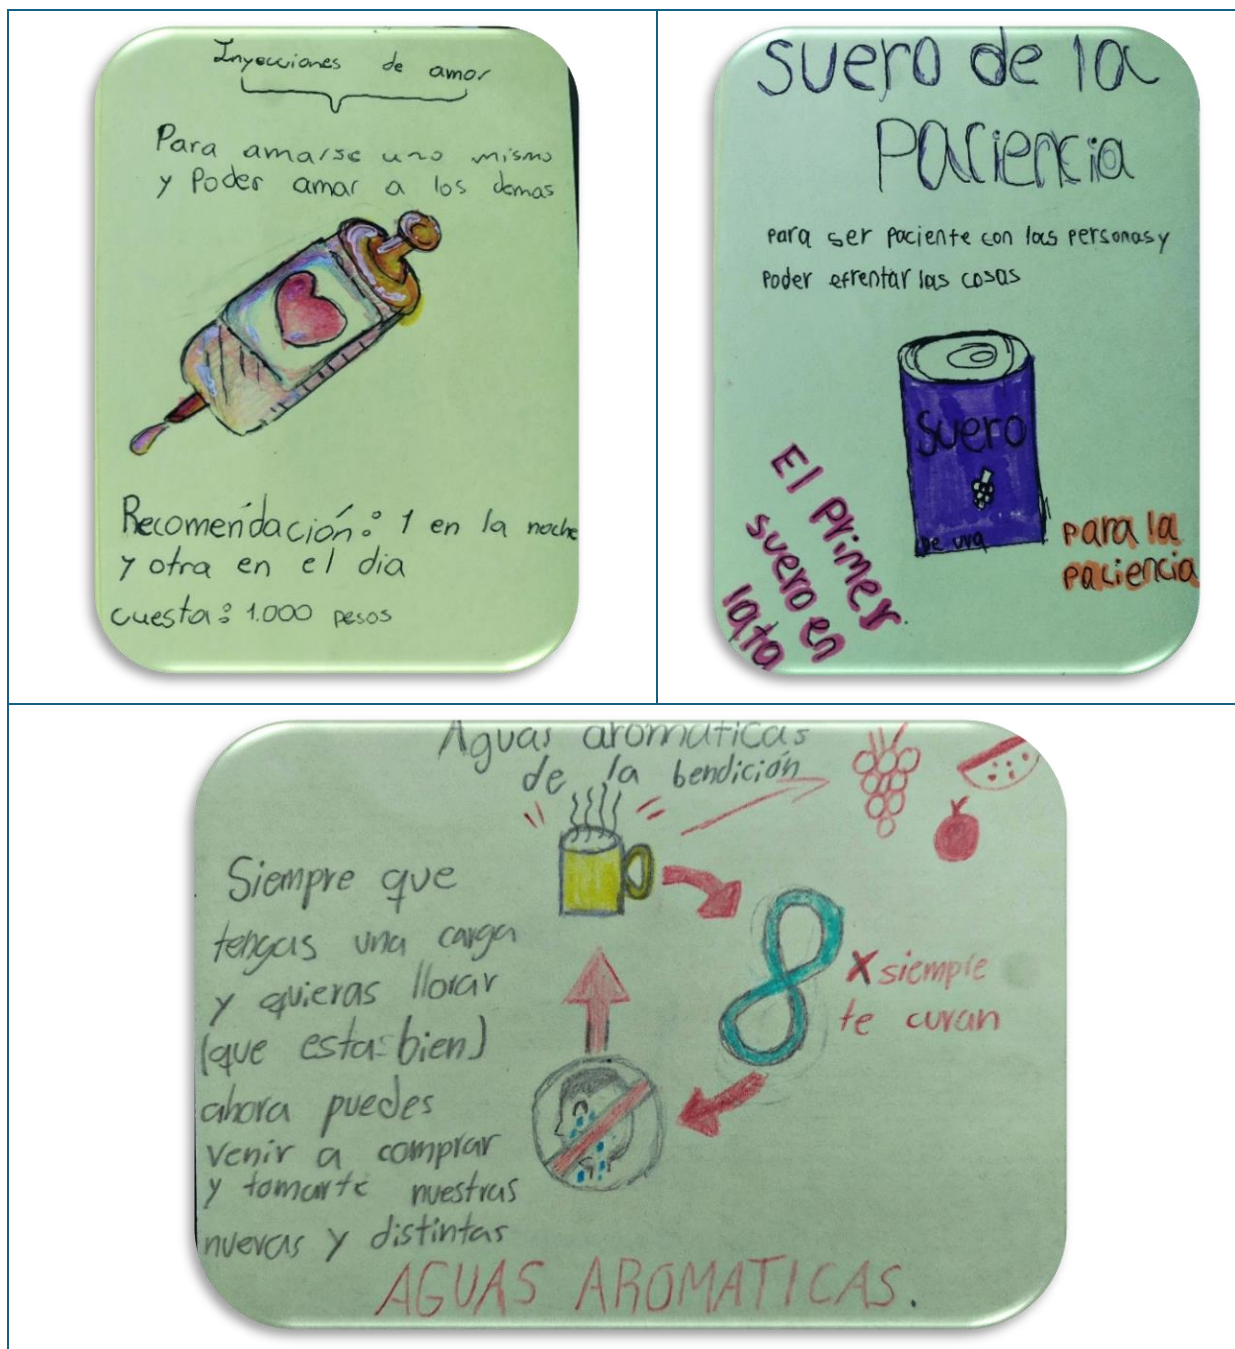 Inyecciones de amor
Para amarse uno mismo
y Poder amar a los demas
Recomendación: 1 en la noche
y otra en el dia
cuesta: 1.000 pesos
suero de la
Paciencia
Para ser Paciente con las Personas y
Poder efrentar las cosas
Suero
De uva
El Primer
suero en
lata
Para la
Paciencia
Aguas aromaticas
de la bendición
Siempre que
tengas una carga
y quieras llorar
(que esta bien)
ahora puedes
venir a comprar
y tomarte nuestras
nuevas y distintas
X siempre
te curan
AGUAS AROMATICAS.